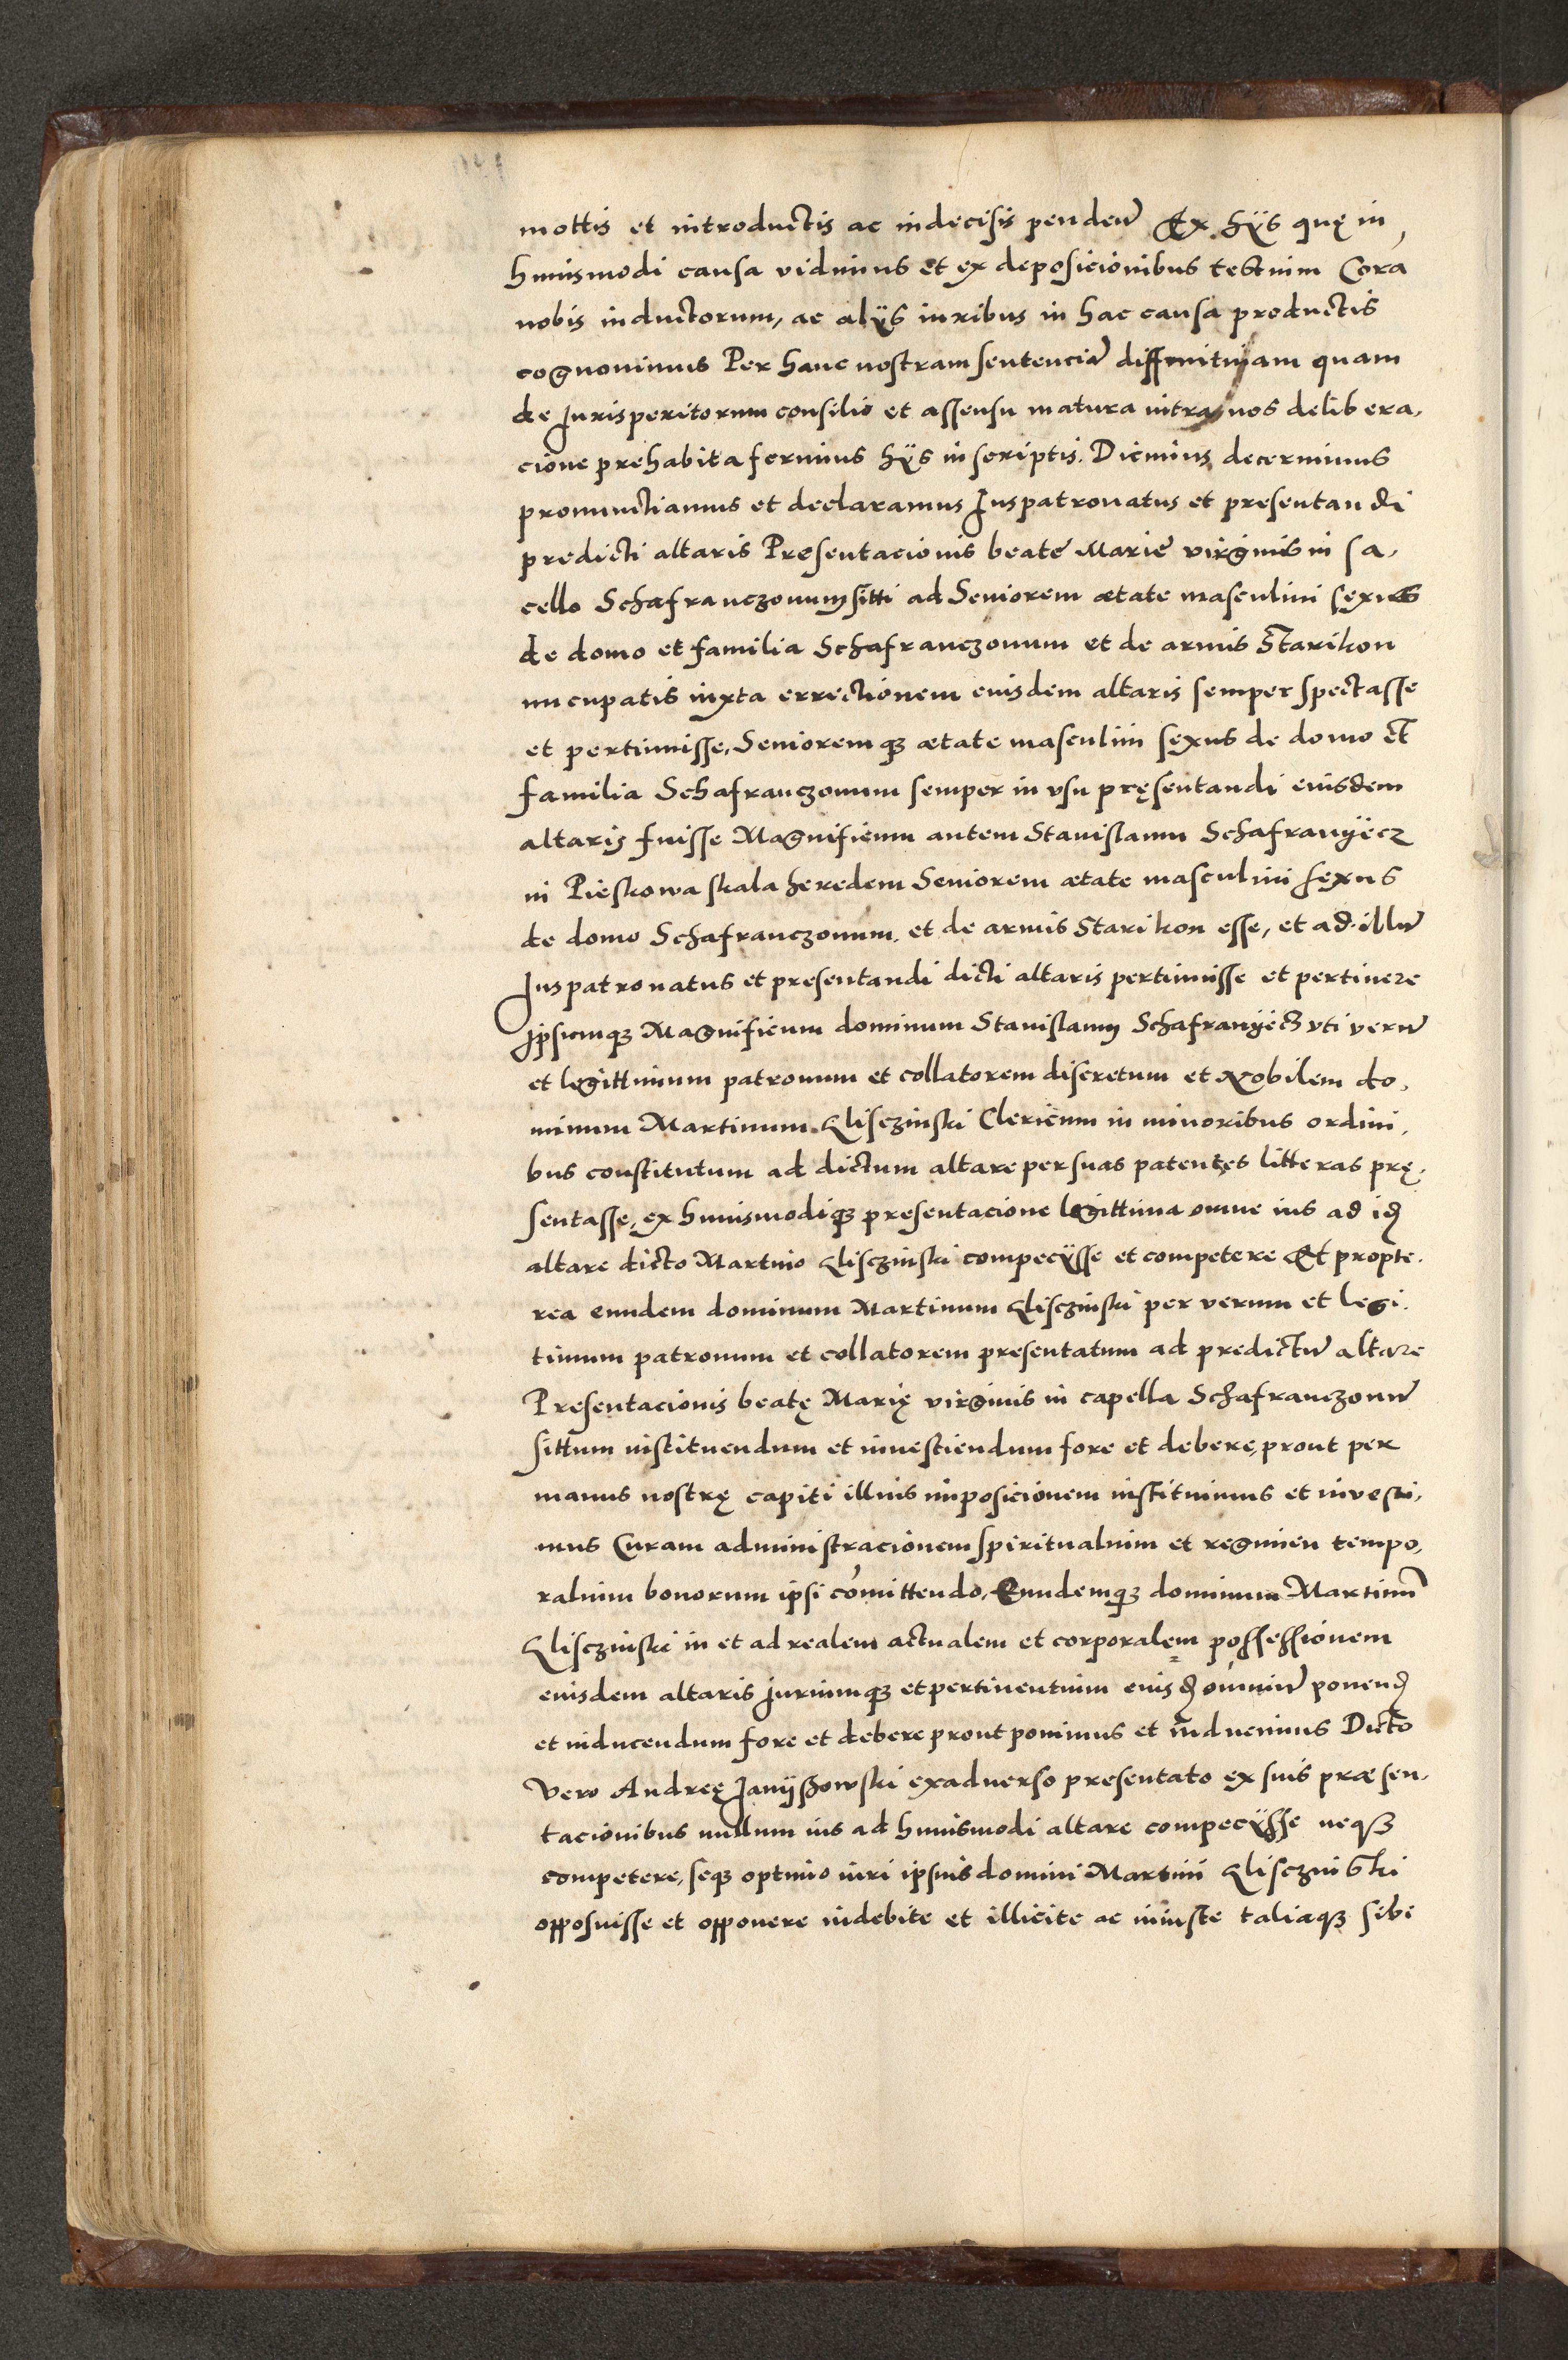 mottis et introductis ac indecisis pendeñ Ex hÿs quę in
huiusmodi causa vidimus et ex deposicionibus testium Cora
nobis inductorum, ac alÿs iuribus in hac causa productis
cognouimus Per hanc nostram sentenciā diffinitiuam quam
de Jurisperitorum consilio et assensu matura intra nos delibera,
cione prehabita ferimus hÿs in scriptis. Dicimus decernimus
pronunctiamus et declaramus Juspatronatus et presentandi
predicti altaris Presentacionis beatę Marię virginis in sa,
cello Schafranczonum sitti ad Seniorem ætate masculini sexus
de domo et familia Schafranczonum et de armis Starikon
nucupatis iuxta errectionem eiusdem altaris semper spectasse
et pertinuisse, Senioremqȝ ætate masculini sexus de domo et
familia Schafranczonum semper in vsu pręsentandi eiusdem
altaris fuisse Magnificum autem Stanislaum Schafranÿecz
in Pieskowa skala heredem Seniorem ætate masculini sexus
de domo Schafranczonum, et de armis Starikon esse, et ad illū
Juspatronatus et presentandi dicti altaris pertinuisse et pertinere
ipsumqȝ Magnificum dominum Stanislaum Schafranÿecz vti verū
et legittimum patronum et collatorem discretum et Nobilem do,
minum Martinum Clisczinski Clericum in minoribus ordini,
bus constitutum ad dictum altare per suas patentes litteras prę,
sentasse, ex huiusmodiqȝ presentacione legittima omne ius ad id
altare dicto Martino Clisczinski compecÿsse et competere Et propte,
rea eundem dominum Martinum Clisczinski per verum et legi,
timum patronum et collatorem presentatum ad predictū altare
Presentacionis beatę Marię virginis in capella Schafranczonū
sittum instituendum et inuestiendum fore et debere, prout per
manus nostrę capiti illius imposicionem instituimus et investi,
mus Curam administracionem spiritualium et regimen tempo,
ralium bonorum ipsi comittendo, Eundemqȝ dominum Martinū
Clisczinski in et ad realem actualem et corporalem possessionem
eiusdem altaris juriumqȝ et pertinentium eiusd omniū ponend
et inducendum fore et debere prout ponimus et inducimus Dicto
vero Andreę Janÿszowski exaduerso presentato ex suis præsen,
tacionibus nullum ius ad huiusmodi altare compecÿsse neqȝ
competere, seqȝ optimo iuri ipsius domini Martini Clisczinski
opposuisse et opponere indebite et illicite ac iniuste taliaqȝ sibi